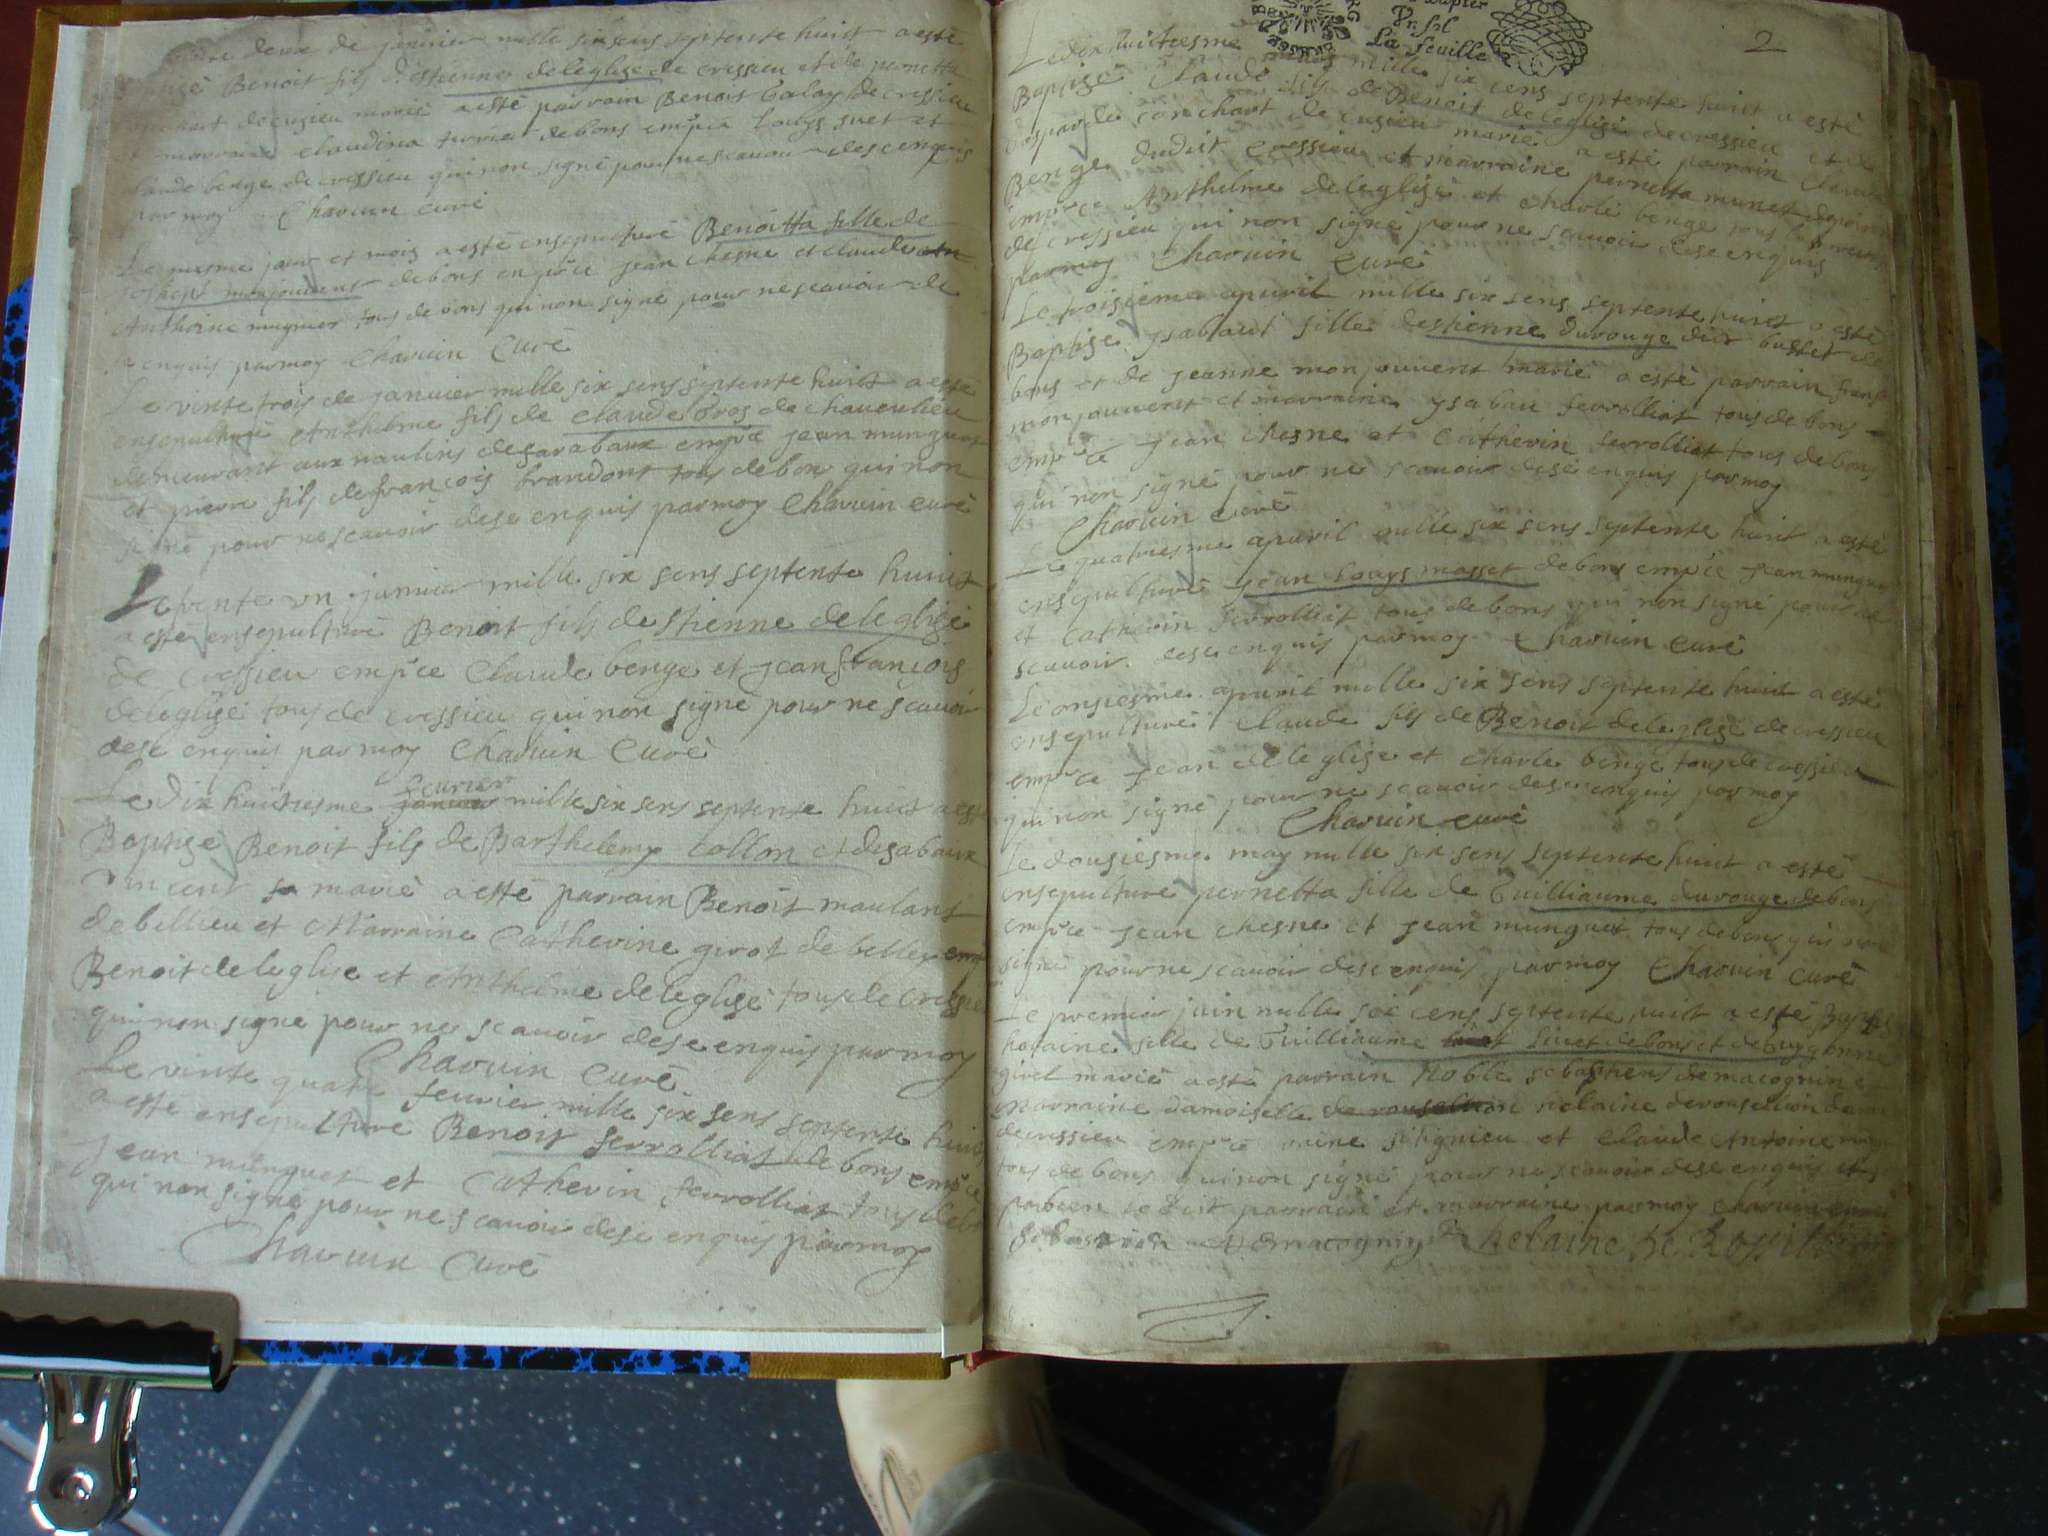 deux de janvier mille six sens septente huict a esté
Benoit fils d'estienne deleglise de cressieu et de pernetta
de cusieu marié a esté parrain Benoit de cressieu
marraine Claudina de bons emp'ce Louys suet et
Claude benge de cressieu qui non signé pour ne scavoir de ce enquis
par moy Charuin curé
Le mesme jour et mois a esté ensepulturé Benoitta fille de
monjouvent de bons emp'ce jean chesne et claude
Anthoine mugnier tous de bons qui non signé pour ne scavoir de
ce enquis par moy Charuin Curé
Le vinte trois de janvier mille six sens septente huict a esté
ensepulturé Anthelme fils de Claude Gros de
demeurant aux emp'ce jean munguet
et pierre fils de françois brandont tous de bon qui non
signé pour ne scavoir dese enquis par moy Charuin curé
Le trente un janvier mille six sens septente huict
a esté ensepulturé Benoit fils de stienne deleglise
de cressieu emp'ce Claude benge et jean françois
deleglise tous de cressieu qui non signé pour ne scavoir
dese enquis par moy Charuin Curé
Le dix huitiesme feurier mille six sens septente huict a esté
Baptisé Benoit fils de Barthelemy Collon et desabaux
vincent sa marié a esté parrain Benoit maulant
de billieu et Marraine Catherine girot de belley emp'ce
Benoit deleglise et Anthelme deleglise tous de Cressieu
qui non signé pour ne scavoir dese enquis par moy
Charuin Curé
Le vinte quatre feurier mille six sens septente huict
a esté ensepulturé Benoit ferrolliat de bons emp'ce
Jean munguet et Catherin ferrolliat tous de bons
qui non signé pour ne scavoir dese enquis par moy
Charuin Curé
papier
La feuille
2
Le dix huitiesme mille six cens septente huict a esté
Baptisé Claude fils de Benoit deleglise de cressieu et de
conchart de cusieu marié a esté parrain Claude
Benge dudict cressieu et marraine pernetta munet
emp'ce Anthelme deleglise et charle benge tous
de cressieu qui non signé pour ne scavoir dese enquis
par moy Charuin Curé
Le troisieme apuril mille six sens septente huict a esté
Baptisé ysabaut fille destienne durouge dict buffet de
bons et de jeanne monjouvent marié a esté parrain
monjouvent et marraine ysabau ferrolliat tous de bons
emp'ce jean chesne et Catherin ferrolliat tous de bons
qui non signé pour ne scavoir dese enquis par moy
Charuin Curé
Le quatriesme apuril mille six sens septente huict a esté
ensepulturé jean Louys masset de bons emp'ce jean munguet
et Catherin ferrolliat tous de bons qui non signé pour ne
scavoir dese enquis par moy Charuin Curé
Le onsiesme apuril mille six sens septente huict a esté
ensepulturé Claude fils de Benoit deleglise de cressieu
emp'ce jean deleglise et charle benge tous de cressieu
qui non signé pour ne scavoir dese enquis par moy
Charuin curé
Le dousiesme may mille six sens septente huict a esté
ensepulturé pernetta fille de Guilliaume durouge de bons
emp'ce jean chesne et jean munguet tous de bons qui non
signé pour ne scavoir dese enquis par moy Charuin Curé
Le premier juin mille six cens septente huict a esté
helaine fille de Guilliaume de bons et de
girel marié a esté parrain Noble sebastiens demacognin et
marraine damoiselle helaine
de cressieu emp'ce et Claude Antoine
tous de bons qui non signé pour ne scavoir dese enquis et
le dict parrain et marraine par moy Charuin curé
demacognin helaine de